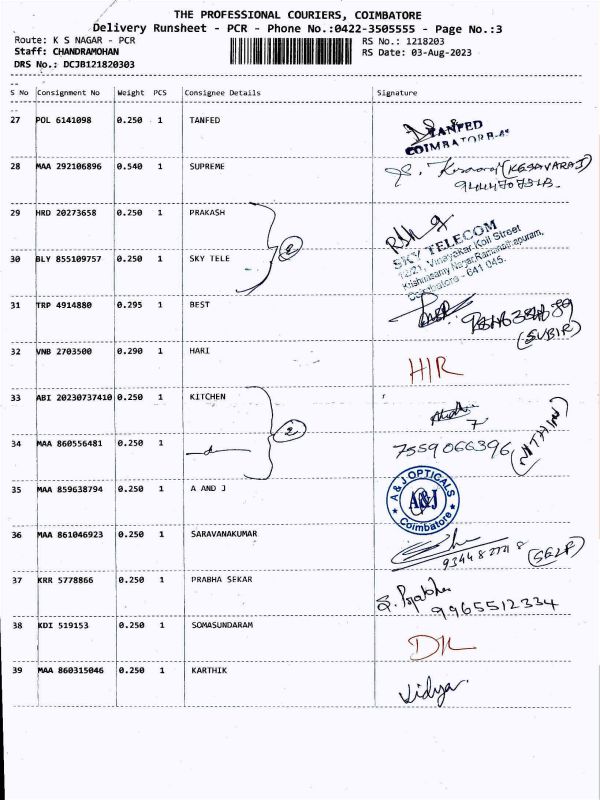 THE PROFESSIONAL COURIERS, COIMBATORE
Delivery Runsheet - PCR - Phone No.:0422-3505555 - Page No.:3
Route: K S NAGAR - PCR
RS No.: 1218203
Staff: CHANDRAMOHAN
RS Date: 03-Aug-2023
DRS No.: DCJB121820303
S No Consignment No Weight PCS Consignee Details Signature
27 POL 6141098 0.250 1 TANFED
TANFED
COIMBATORE
28 MAA 292106896 0.540 1 SUPREME
(KESAVARAJ)
29 HRD 20273658 0.250 1 PRAKASH
2
30 BLY 855109757 0.250 1 SKY TELE
SKY TELECOM
12/21, Vinayakar Koil Street
Krishnasamy Nagar, Ramanathapuram,
Coimbatore - 641 045.
31 TRP 4914880 0.295 1 BEST
(SUBIR)
32 VNB 2703500 0.290 1 HARI
HIR
33 ABI 20230737410 0.250 1 KITCHEN
2
34 MAA 860556481 0.250 1
7559066396 (NITHIN)
35 MAA 859638794 0.250 1 A AND J
A & J OPTICALS
A&J
Coimbatore
36 MAA 861046923 0.250 1 SARAVANAKUMAR
(SELF)
37 KRR 5778866 0.250 1 PRABHA SEKAR
S. Prabha
9965512334
38 KDI 519153 0.250 1 SOMASUNDARAM
39 MAA 860315046 0.250 1 KARTHIK
Vidya